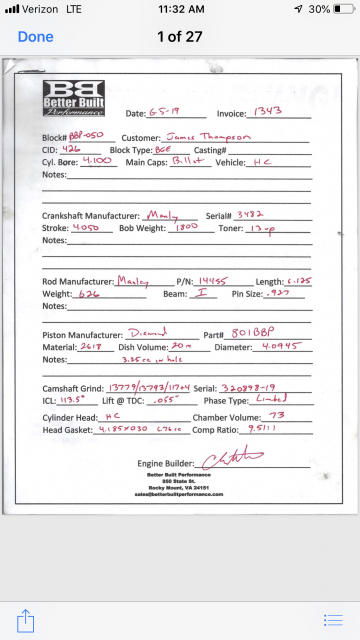 Verizon LTE 11:32 AM 30%
Done 1 of 27
BB
Better Built
Performance
Date: 6-5-19 Invoice: 1343
Block# BBP-050 Customer: James Thompson
CID: 426 Block Type: BGE Casting#
Cyl. Bore: 4.100 Main Caps: Billet Vehicle: HC
Notes:
Crankshaft Manufacturer: Manley Serial# 3482
Stroke: 4.050 Bob Weight: 1800 Toner:
Notes:
Rod Manufacturer: Manley P/N: 14455 Length: 6.125
Weight: 626 Beam: I Pin Size: .927
Notes:
Piston Manufacturer: Diamond Part# 801BBP
Material: 2618 Dish Volume: Diameter: 4.0945
Notes: 3.35cc in hole
Camshaft Grind: 13779/13793/117+4 Serial: 320898-19
ICL: 113.5° Lift @ TDC: .055" Phase Type: Limited
Cylinder Head: HC Chamber Volume: 73
Head Gasket: 4.185x030 6.76cc Comp Ratio: 9.51:1
Engine Builder:
Better Built Performance
850 State St.
Rocky Mount, VA 24151
sales@betterbuiltperformance.com